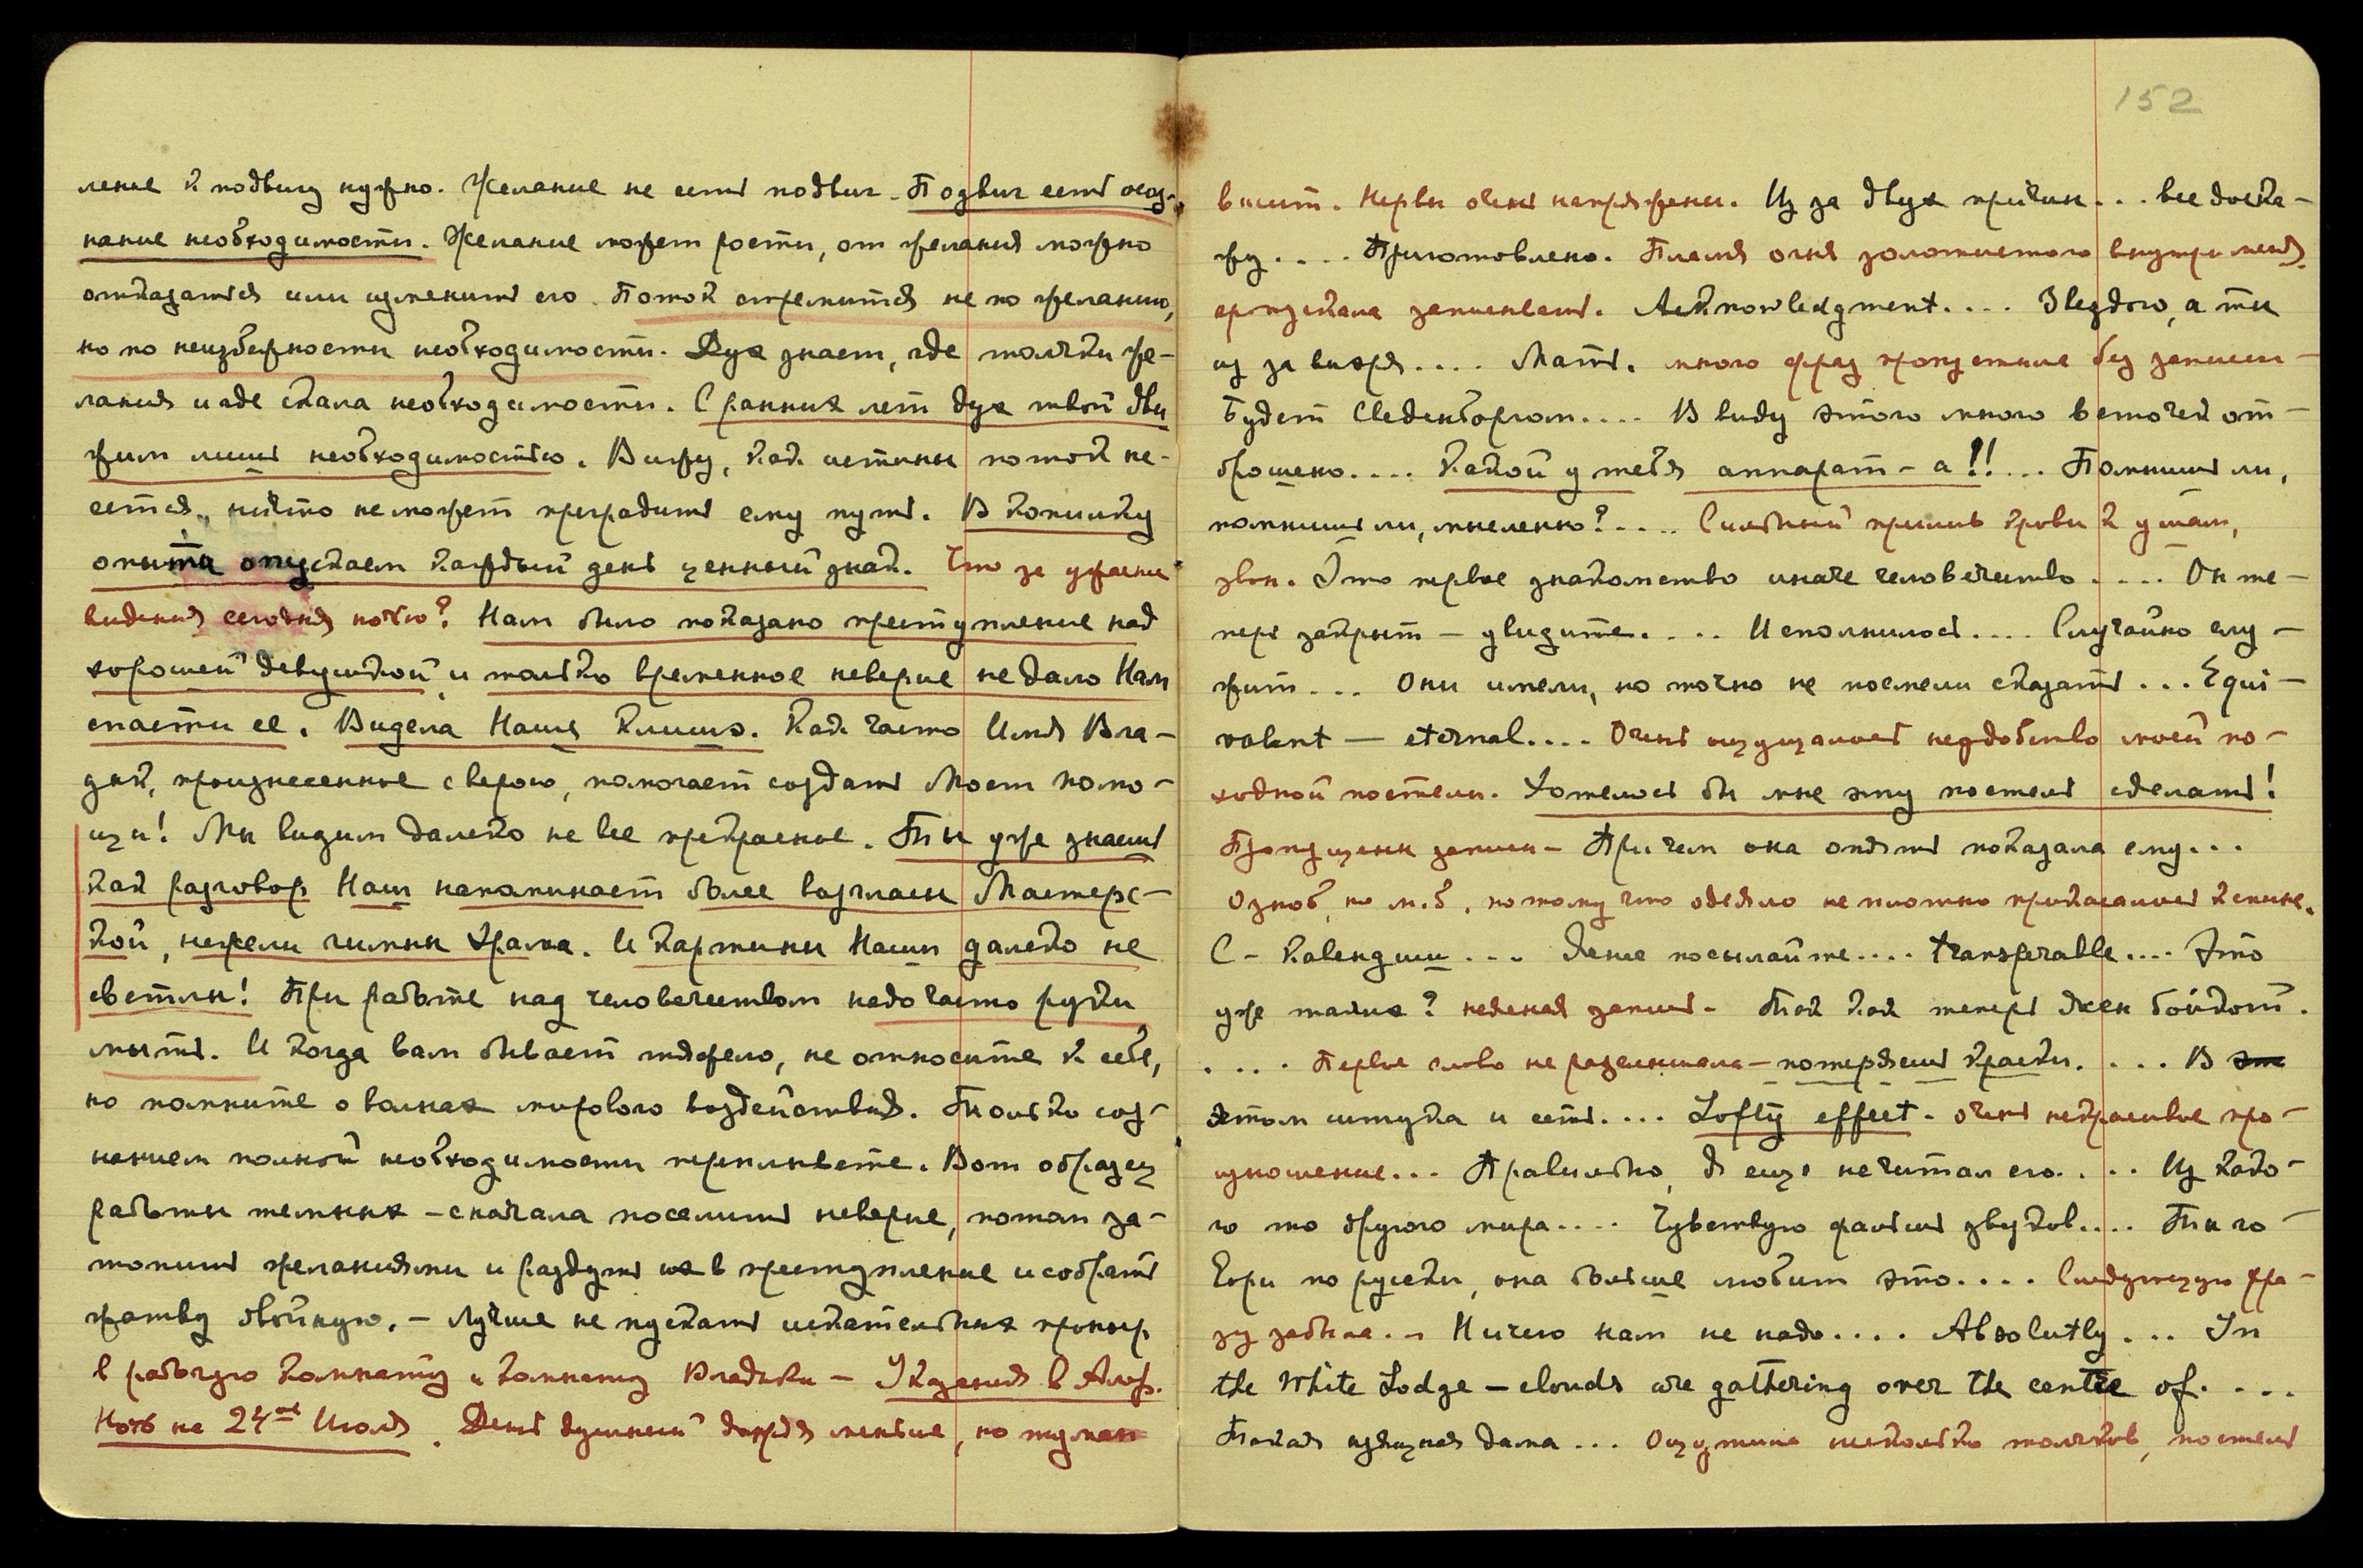 ление к подвигу нужно. Желание не есть подвиг. Подвиг есть осоз-
нание необходимости. Желание может расти, от желания можно
отказаться или изменить его. Поток стремится не по желанию,
но по неизбежности необходимости. Дух знает, где толчки же-
лания и где скала необходимости. С ранних лет дух твой дви
жим лишь необходимостью. Вижу, как истины поток не-
сется, ничто не может преградить ему путь. В копилку
опыта опускаем каждый день ценный знак. Что за ужасные
видения сегодня ночью? Нам было показано преступление над
хорошей девушкой и только временное неверие не дало Нам
спасти ее. Видела Нашу Клишэ. Как часто Имя Вла-
дык, произнесенное с верою, помогает создать Мост помо-
щи! Мы видим далеко не все прекрасное. Ты уже знаешь
как разговор Наш напоминает более возгласы Мастерс-
кой, нежели гимны Храма. И картины Наши далеко не
светлы! При работе над человечеством надо часто руки
мыть. И когда вам бывает тяжело, не относите к себе,
но помните о волнах мирового воздействия. Только соз-
нанием полной необходимости переплывете. Вот образец
работы темных – сначала поселить неверие, потом за-
топить желаниями и раздуть их в преступление и собрать
жатву двойную. – Лучше не пускать испательных
в рабочую комнату и комнату Владыки – Указания в Агор.
Ночь на 24ое Июля. День душный дождя меньше, но туман
152
висит. Нервы очень напряжены. Из за двух причин... все доска-
жу.... Приготовлено. Пламя огня золотистого внутри меня.
опускала записывать. Acknowledgment.... Звездою, а ты
из за вихря.... Мать. много фраз пропустила без записи
Будет Сведенборгом.... В виду этого много веточек от-
брошено.... Какой у тебя аппарат – а!!... Помнишь ли,
помнишь ли, мысленно?.... Сильный прилив крови к ушам,
звон. Это первое знакомство иначе человечество.... Он те-
перь закрыт – увидите.... Исполнилось.... Случайно слу-
жит... Они имели, но точно не посмели сказать... Equi-
valent — eternal.... Очень ощущалось неудобство моей по-
ходной постели. Хотелось бы мне эту постель сделать!
Пропущены записи – Причем она опять показала ему...
Озноб, но м.б. потому что одеяло не плотно прикасалось к спине.
С – Календши... посылайте.... transferable.... Это
уже таких? неясная запись. Так как теперь джен бойкот.
.... Первое слово не расслышала – потерявши краски.... В эт
этом штука и есть.... Lofty effect. очень некрасивое про-
изношение... Правильно, я еще не читал его.... Из како-
го то другого мира.... Чувствую фальшь звуков.... Ты го-
вори по русски, она больше любит это.... Следующую фра-
зу забыла... Ничего нам не надо.... Absolutly... In
the White Lodge – clouds are gathering over the centre of....
Такая изящная дама... Ощутила несколько толчков, постель